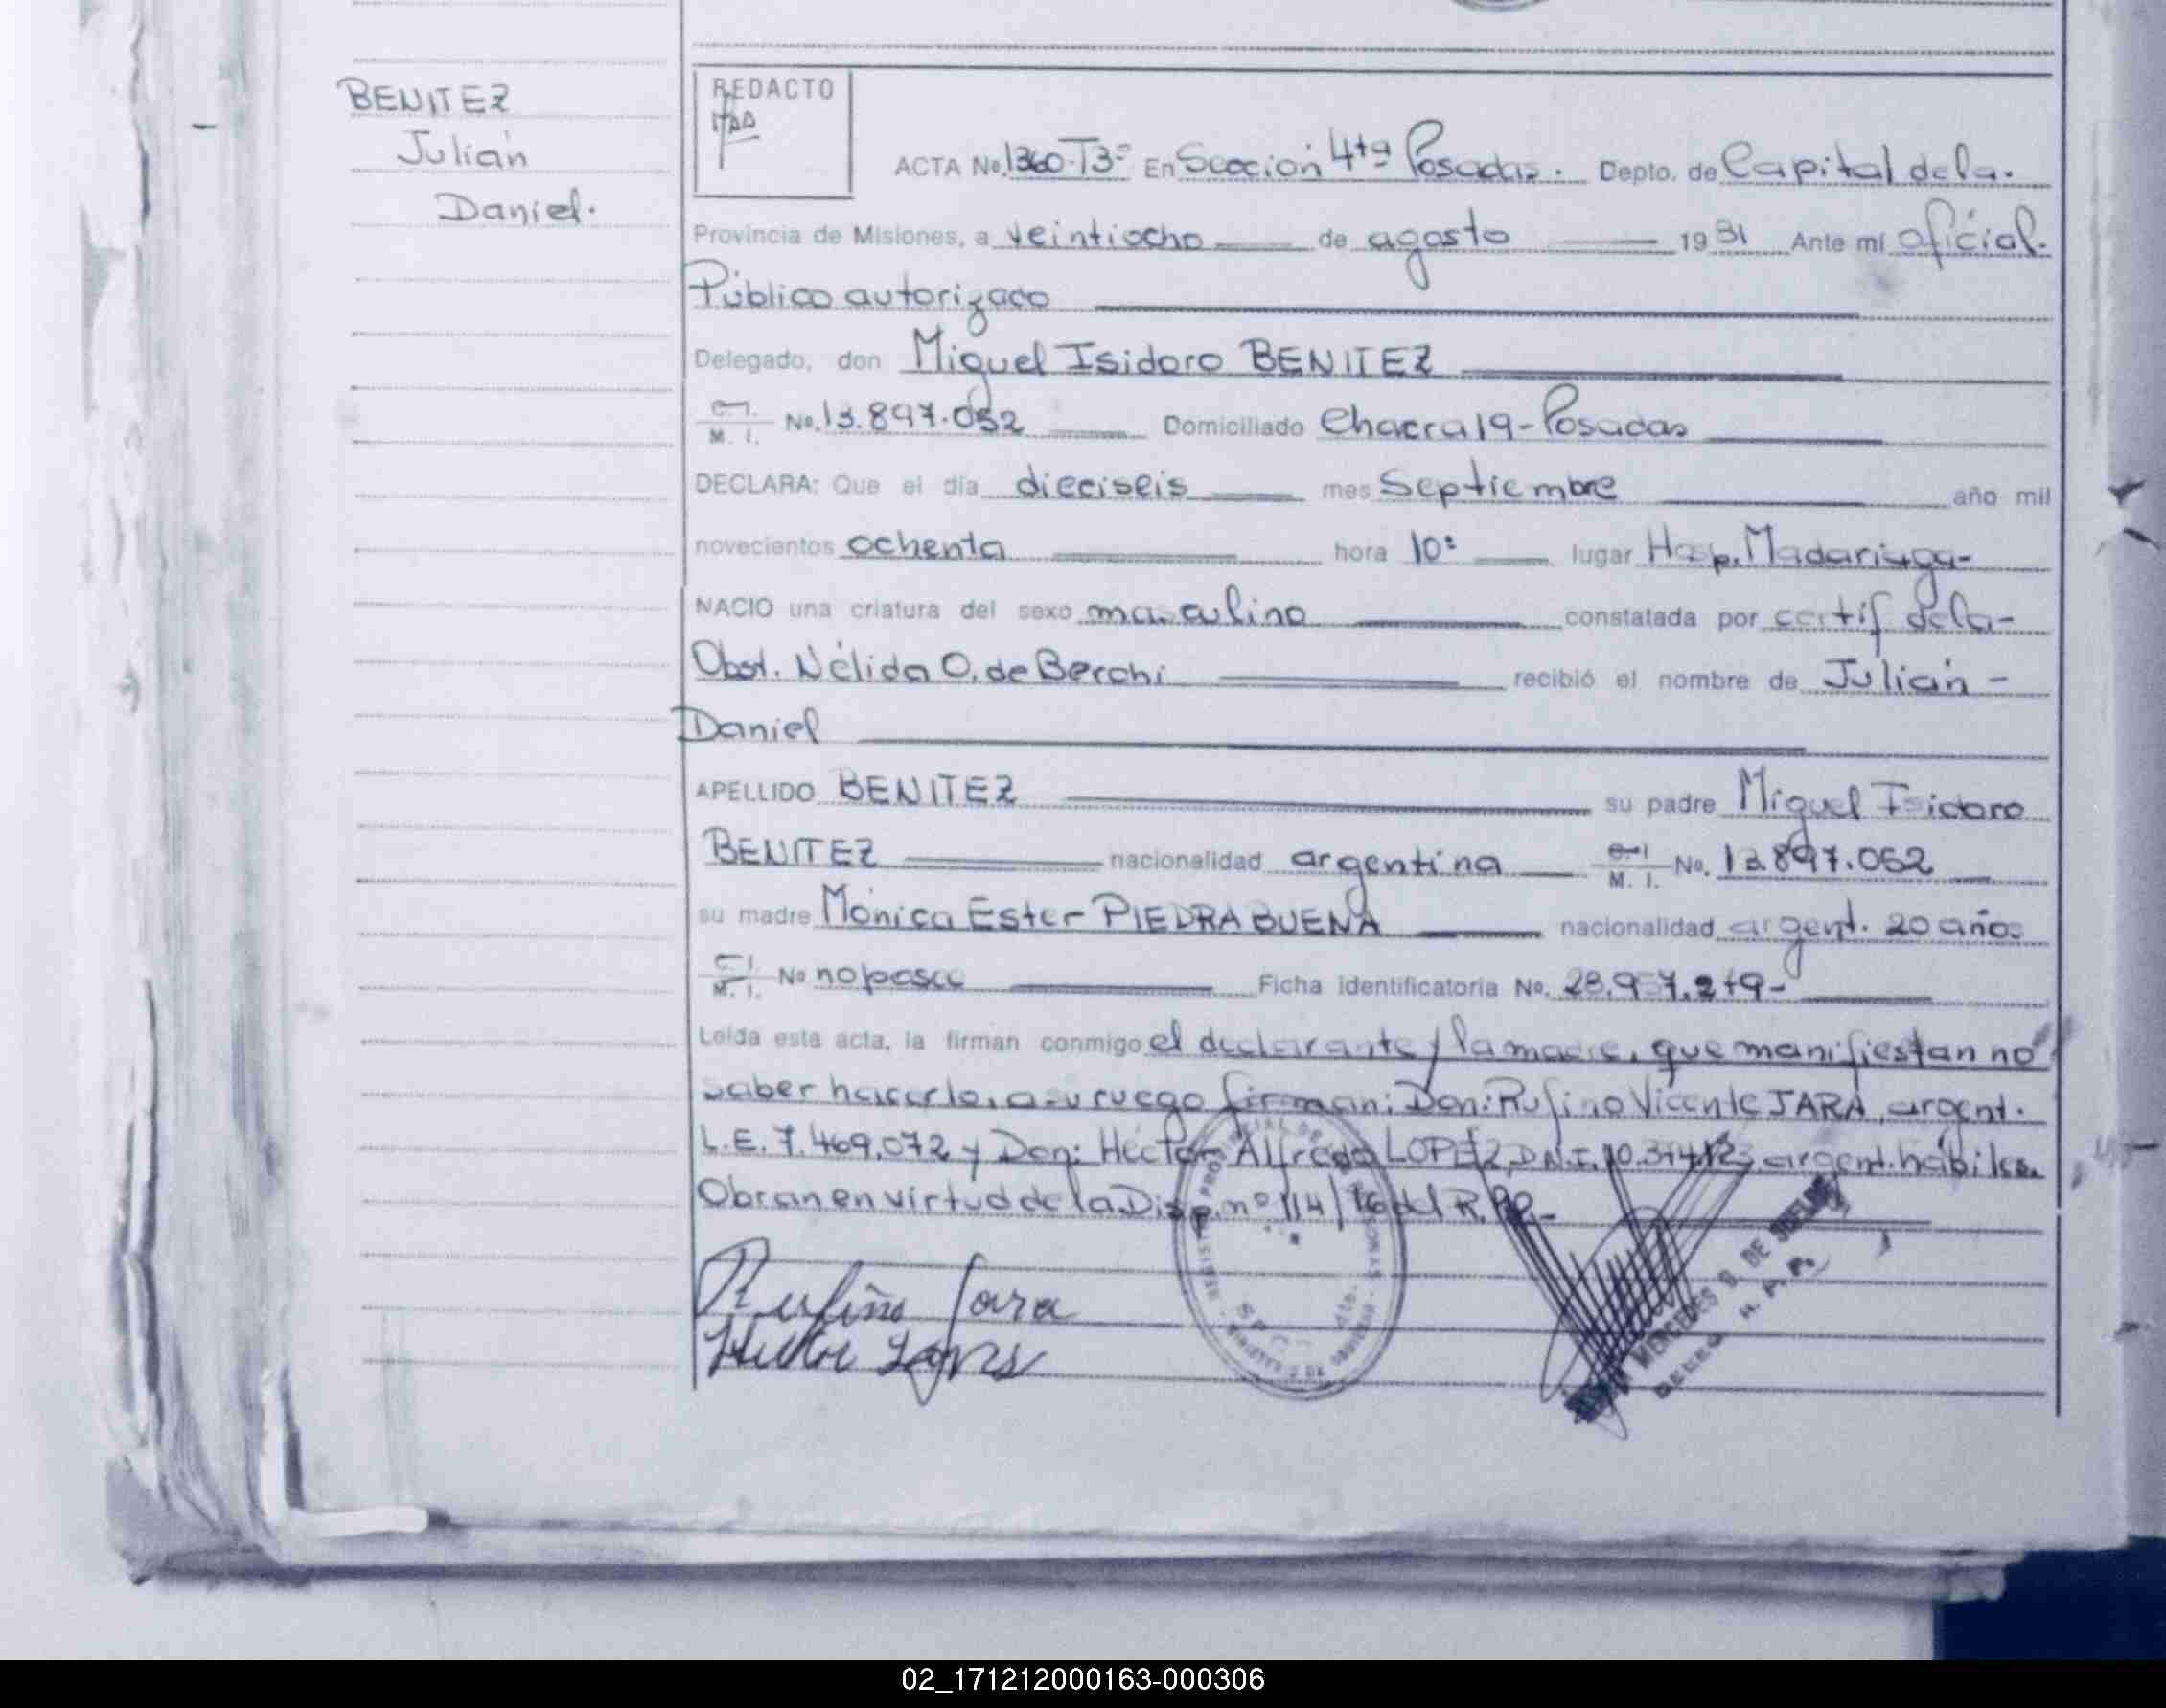 BENITEZ
Julián
Daniel.
REDACTO
ACTA No. 1360-T3º En Sección 4ta Posadas. Depto. de Capital de la.
Provincia de Misiones, a veintiocho de agosto 1981 Ante mí oficial.
Público autorizado
Delegado, don Miguel Isidoro BENITEZ
C.I. M. I. No. 13.897.052 Domiciliado Chacra 19-Posadas
DECLARA: Que el día dieciseis mes Septiembre año mil
novecientos ochenta hora 10: lugar Hosp. Madariaga-
NACIO una criatura del sexo masculino constatada por certif de la-
Obst. Nélida O. de Berchi recibió el nombre de Julián -
Daniel
APELLIDO BENITEZ su padre Miguel Isidoro
BENITEZ nacionalidad argentina C.I. M. I. No. 13.897.052
su madre Mónica Ester PIEDRABUENA nacionalidad argent. 20 años
C.I. M. I. No no posee Ficha identificatoria No. 28.957.279-
Leída esta acta, la firman conmigo el declarante y la madre, que manifiestan no
saber hacerlo, a su ruego firman: Don: Rufino Vicente JARA, argent.
L.E. 7.469.072 y Don: Héctor Alfredo LOPEZ, D.N.I. argent. hábiles.
Obran en virtud de la Disp. nº 114/76 del R.PP.-
Rufino Jara
Hector Lopes
MERCEDES DE
02_171212000163-000306